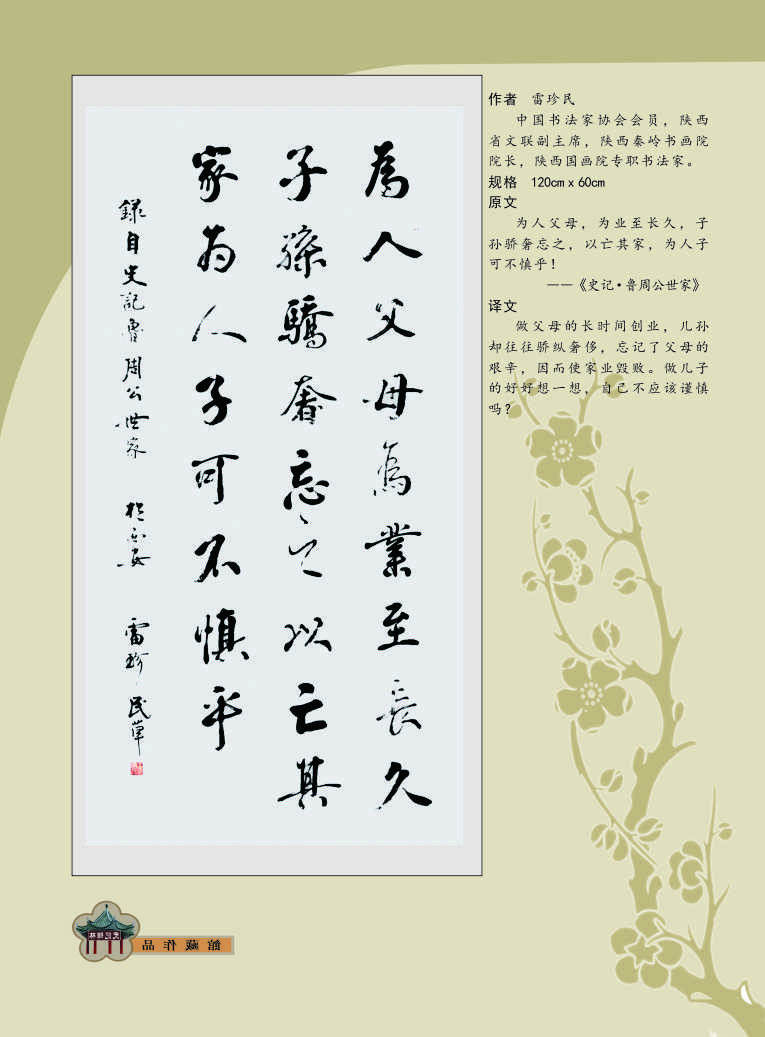 為人父母為業至長久
子孫驕奢忘之以亡其
家为人子可不慎乎
錄自史記魯周公世家 於西安 雷珍民草
作者 雷珍民
中国书法家协会会员，陕西
省文联副主席，陕西秦岭书画院
院长，陕西国画院专职书法家。
规格 120cm x 60cm
原文
为人父母，为业至长久，子
孙骄奢忘之，以亡其家，为人子
可不慎乎！
——《史记·鲁周公世家》
译文
做父母的长时间创业，儿孙
却往往骄纵奢侈，忘记了父母的
艰辛，因而使家业毁败。做儿子
的好好想一想，自己不应该谨慎
吗？
館藏作品